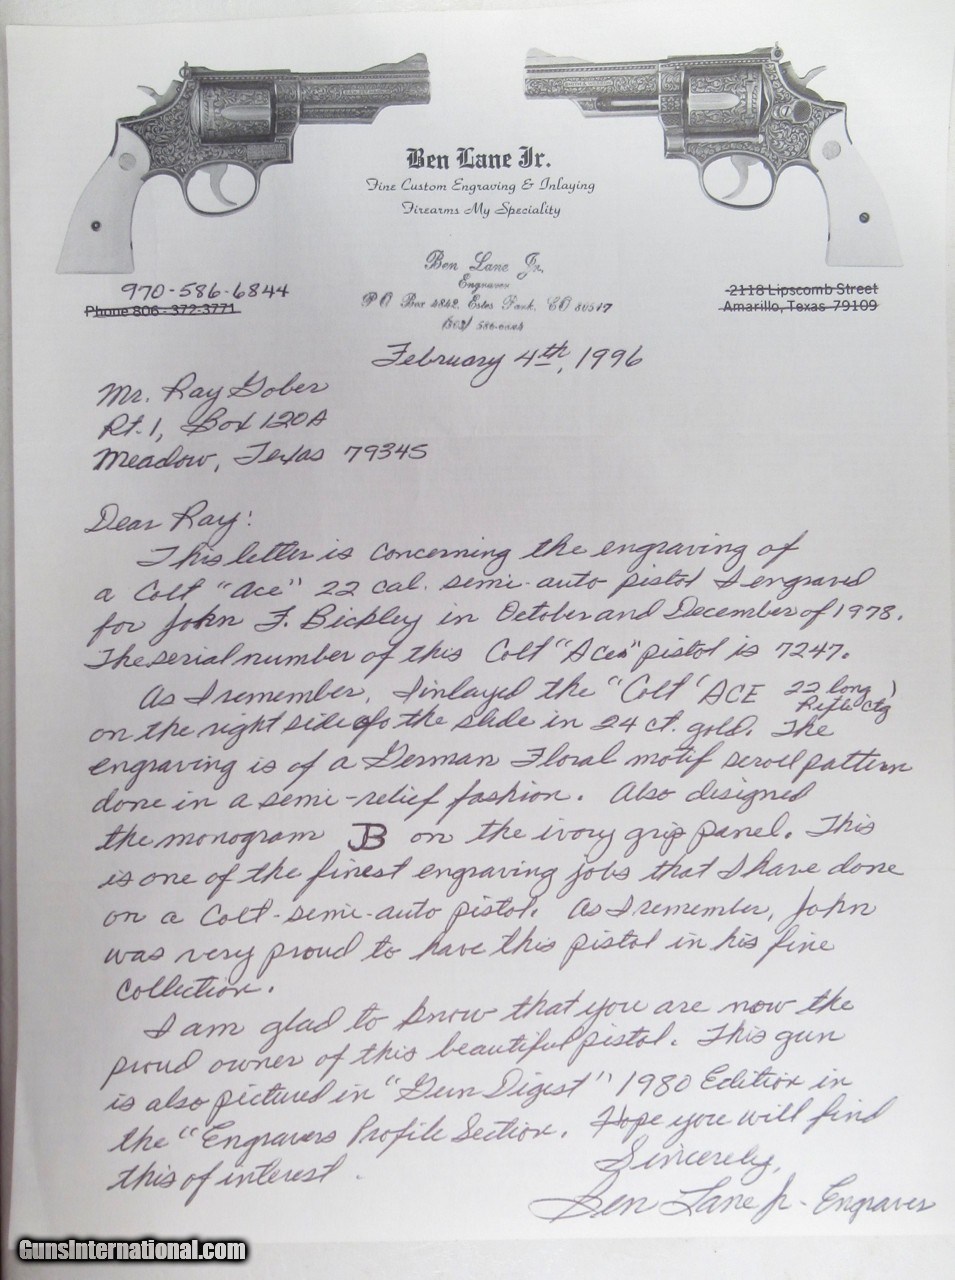 Ben Lane Jr.
Fine Custom Engraving & Inlaying
Firearms My Speciality
Ben Lane Jr.
Engraver
P O Box 4842, Estes Park, CO 80517
970-586-6844
Phone 806-372-3771
2118 Lipscomb Street
Amarillo, Texas 79109
February 4th, 1996
Mr. Ray Gober
Rt. 1, Box 120A
Meadow, Texas 79345
Dear Ray:
This letter is concerning the engraving of
a Colt "Ace" 22 cal. semi-auto pistol I engraved
for John F. Bickley in October and December of 1978.
The serial number of this Colt "Ace" pistol is 7247.
As I remember, I inlayed the "Colt 'ACE 22 long Rifle ctg)
on the right side of the slide in 24 ct. gold. The
engraving is of a German Floral motif scroll pattern
done in a semi-relief fashion. Also designed
the monogram JB on the ivory grip panel. This
is one of the finest engraving jobs that I have done
on a Colt-semi-auto pistol. As I remember, John
was very proud to have this pistol in his fine
collection.
I am glad to know that you are now the
proud owner of this beautiful pistol. This gun
is also pictured in "Gun Digest" 1980 Edition in
the "Engravers Profile Section. Hope you will find
this of interest.
Sincerely,
Ben Lane Jr - Engraver
GunsInternational.com